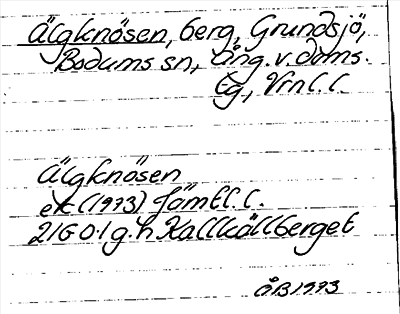 Älgknösen, berg, Grundsjö,
Bodums sn, Ång. v. doms.
tg., Vrnl. l.
Älgknösen
ek (1973) Jämtl. l.
21G 0-1 g.h Kallkällberget
ÅB 1973